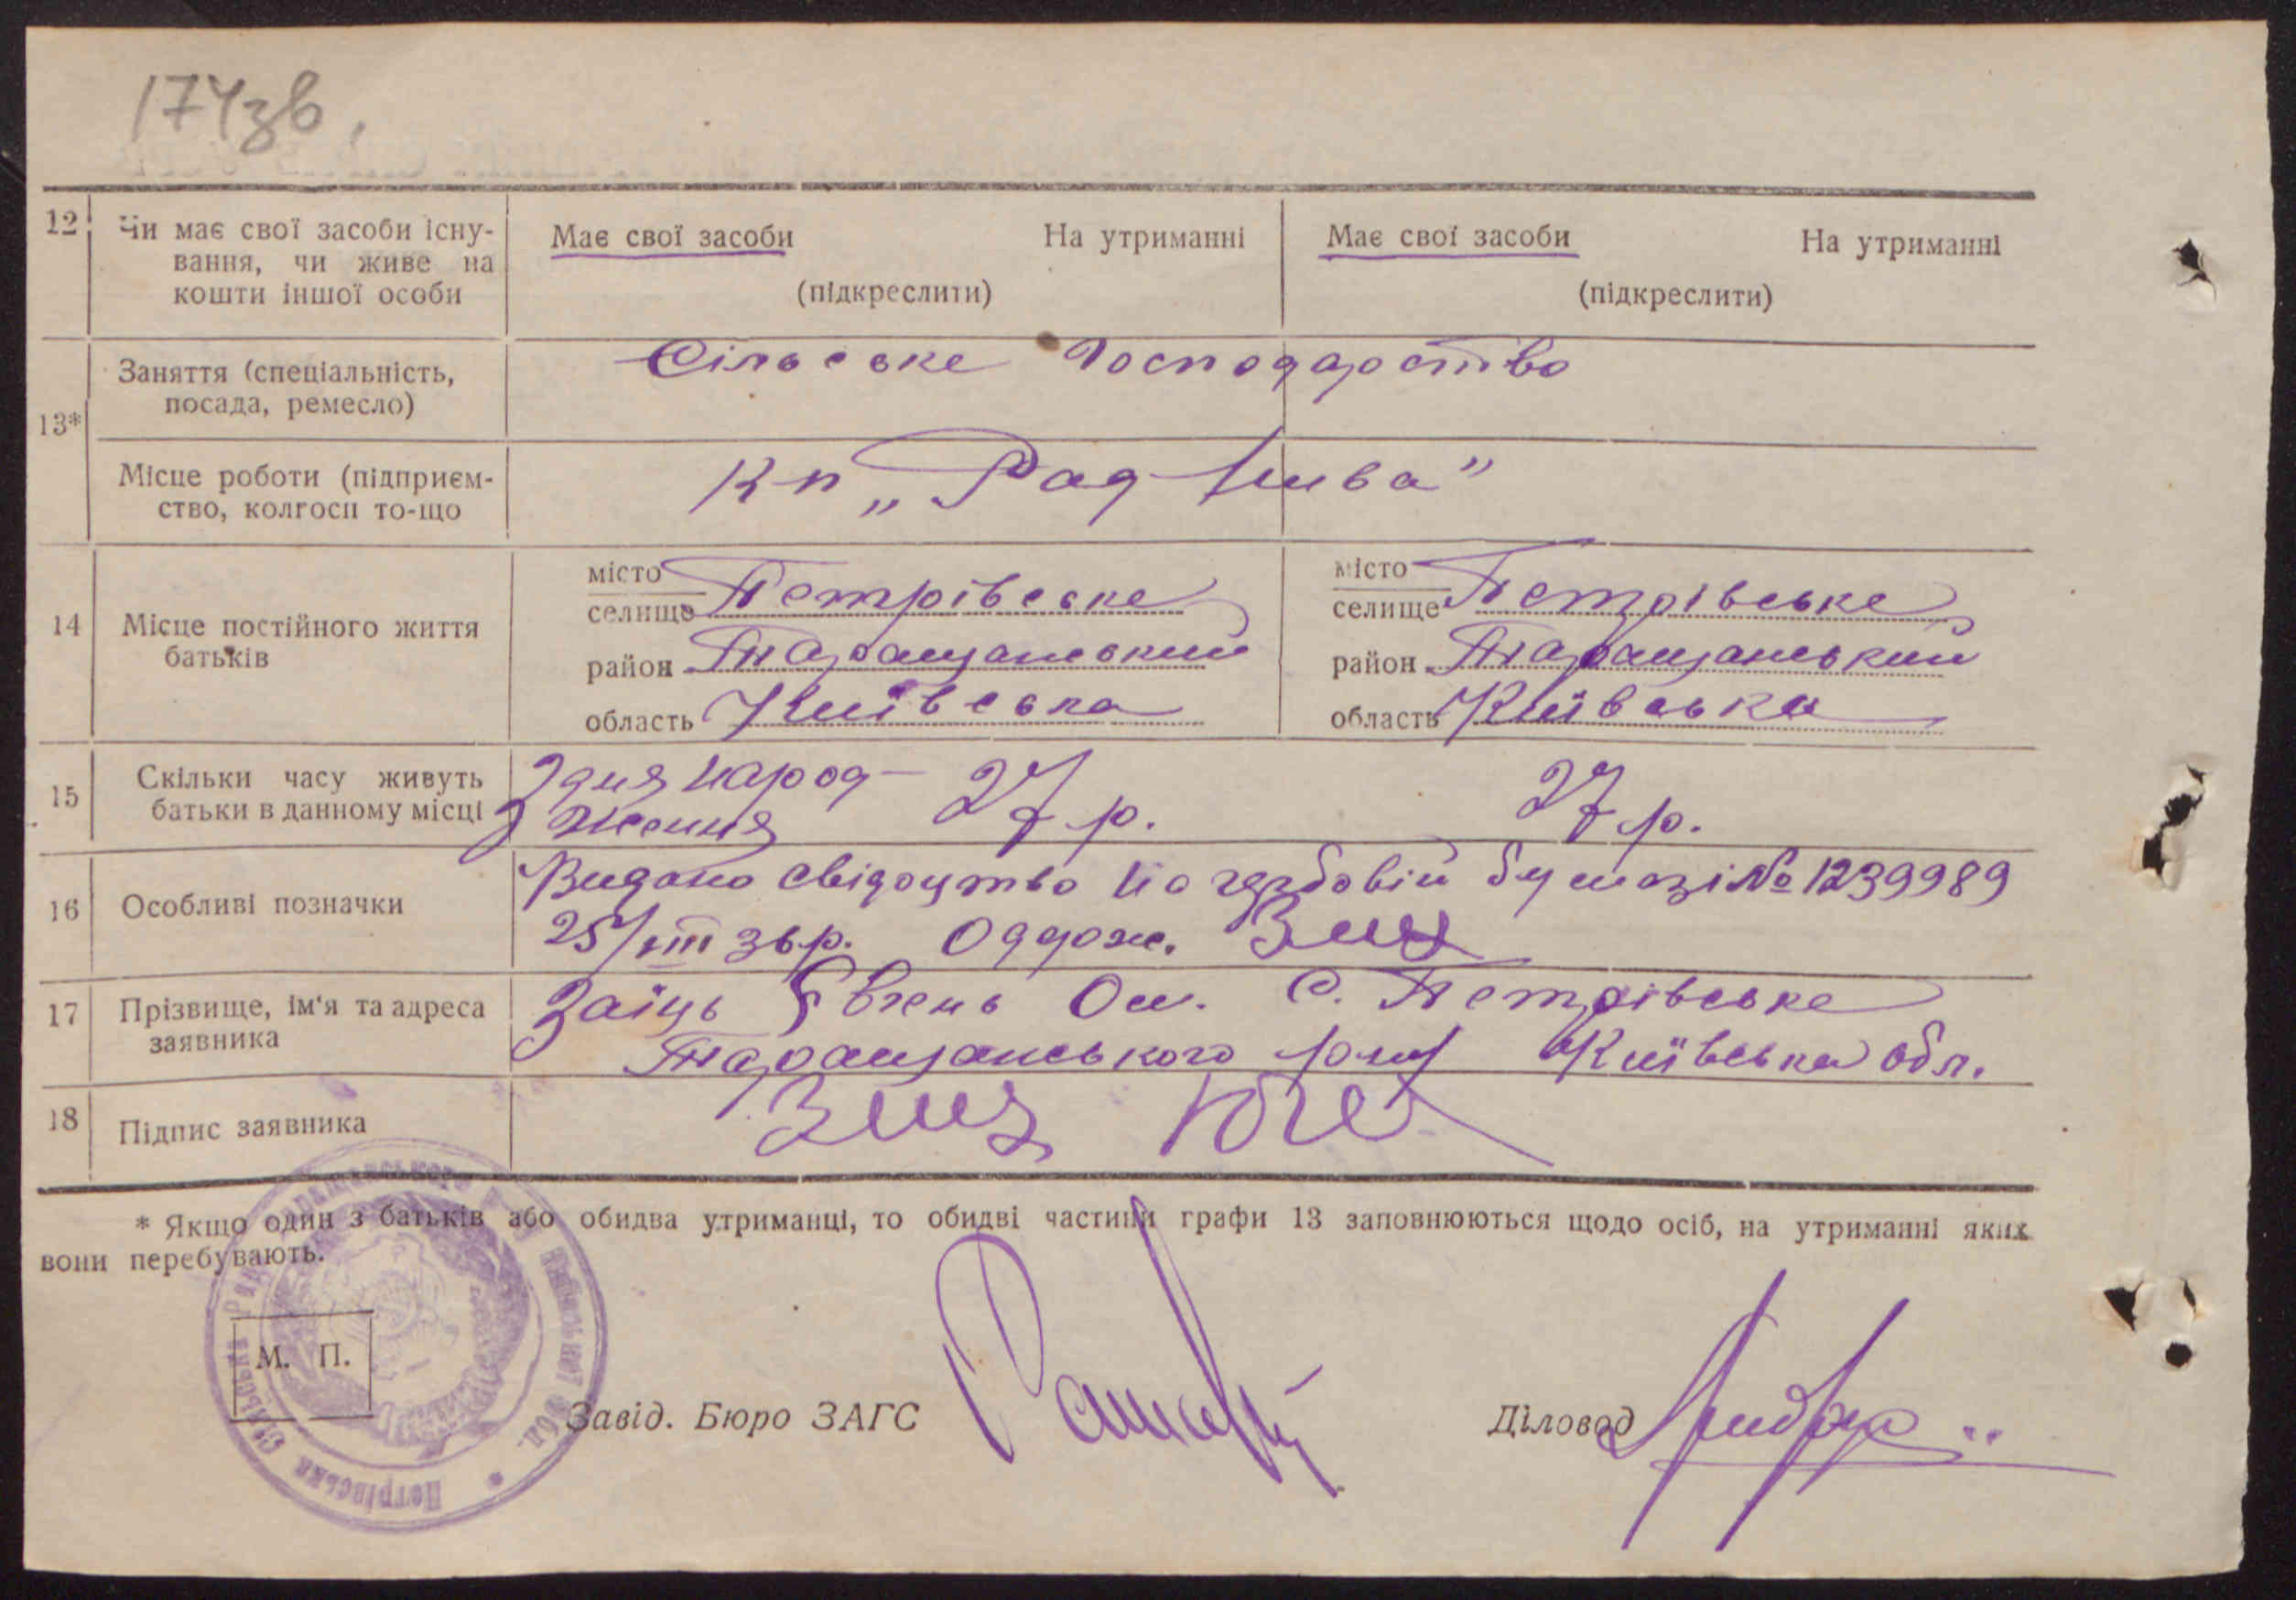 174зв
12 Чи має свої засоби існу- Має свої засоби На утриманні Має свої засоби На утриманні
вання, чи живе на
кошти іншої особи (підкреслити) (підкреслити)
13* Заняття (спеціальність, Сільське Господарство
посада, ремесло)
Місце роботи (підприєм- Кп „Рад Нива"
ство, колгосп то-що
14 Місце постійного життя батьків
місто
селище Петрівське
район Таращанський
область Київська
місто
селище Петрівське
район Таращанський
область Київська
15 Скільки часу живуть З дня народ- 27 р. 27 р.
батьки в данному місці ження
16 Особливі позначки Видано свідоцтво на гербовій бумазі № 1239989
25/VIII 36 р. Оддож.
17 Прізвище, ім'я та адреса Заїць Євгень Ом. С. Петрівське
заявника Таращанського Київська обл.
18 Підпис заявника
* Якщо один з батьків або обидва утриманці, то обидві частини графи 13 заповнюються щодо осіб, на утриманні яких
вони перебувають.
М. П.
Петрівська Сільська Рада Таращанського Київської обл.
Завід. Бюро ЗАГС
Діловод